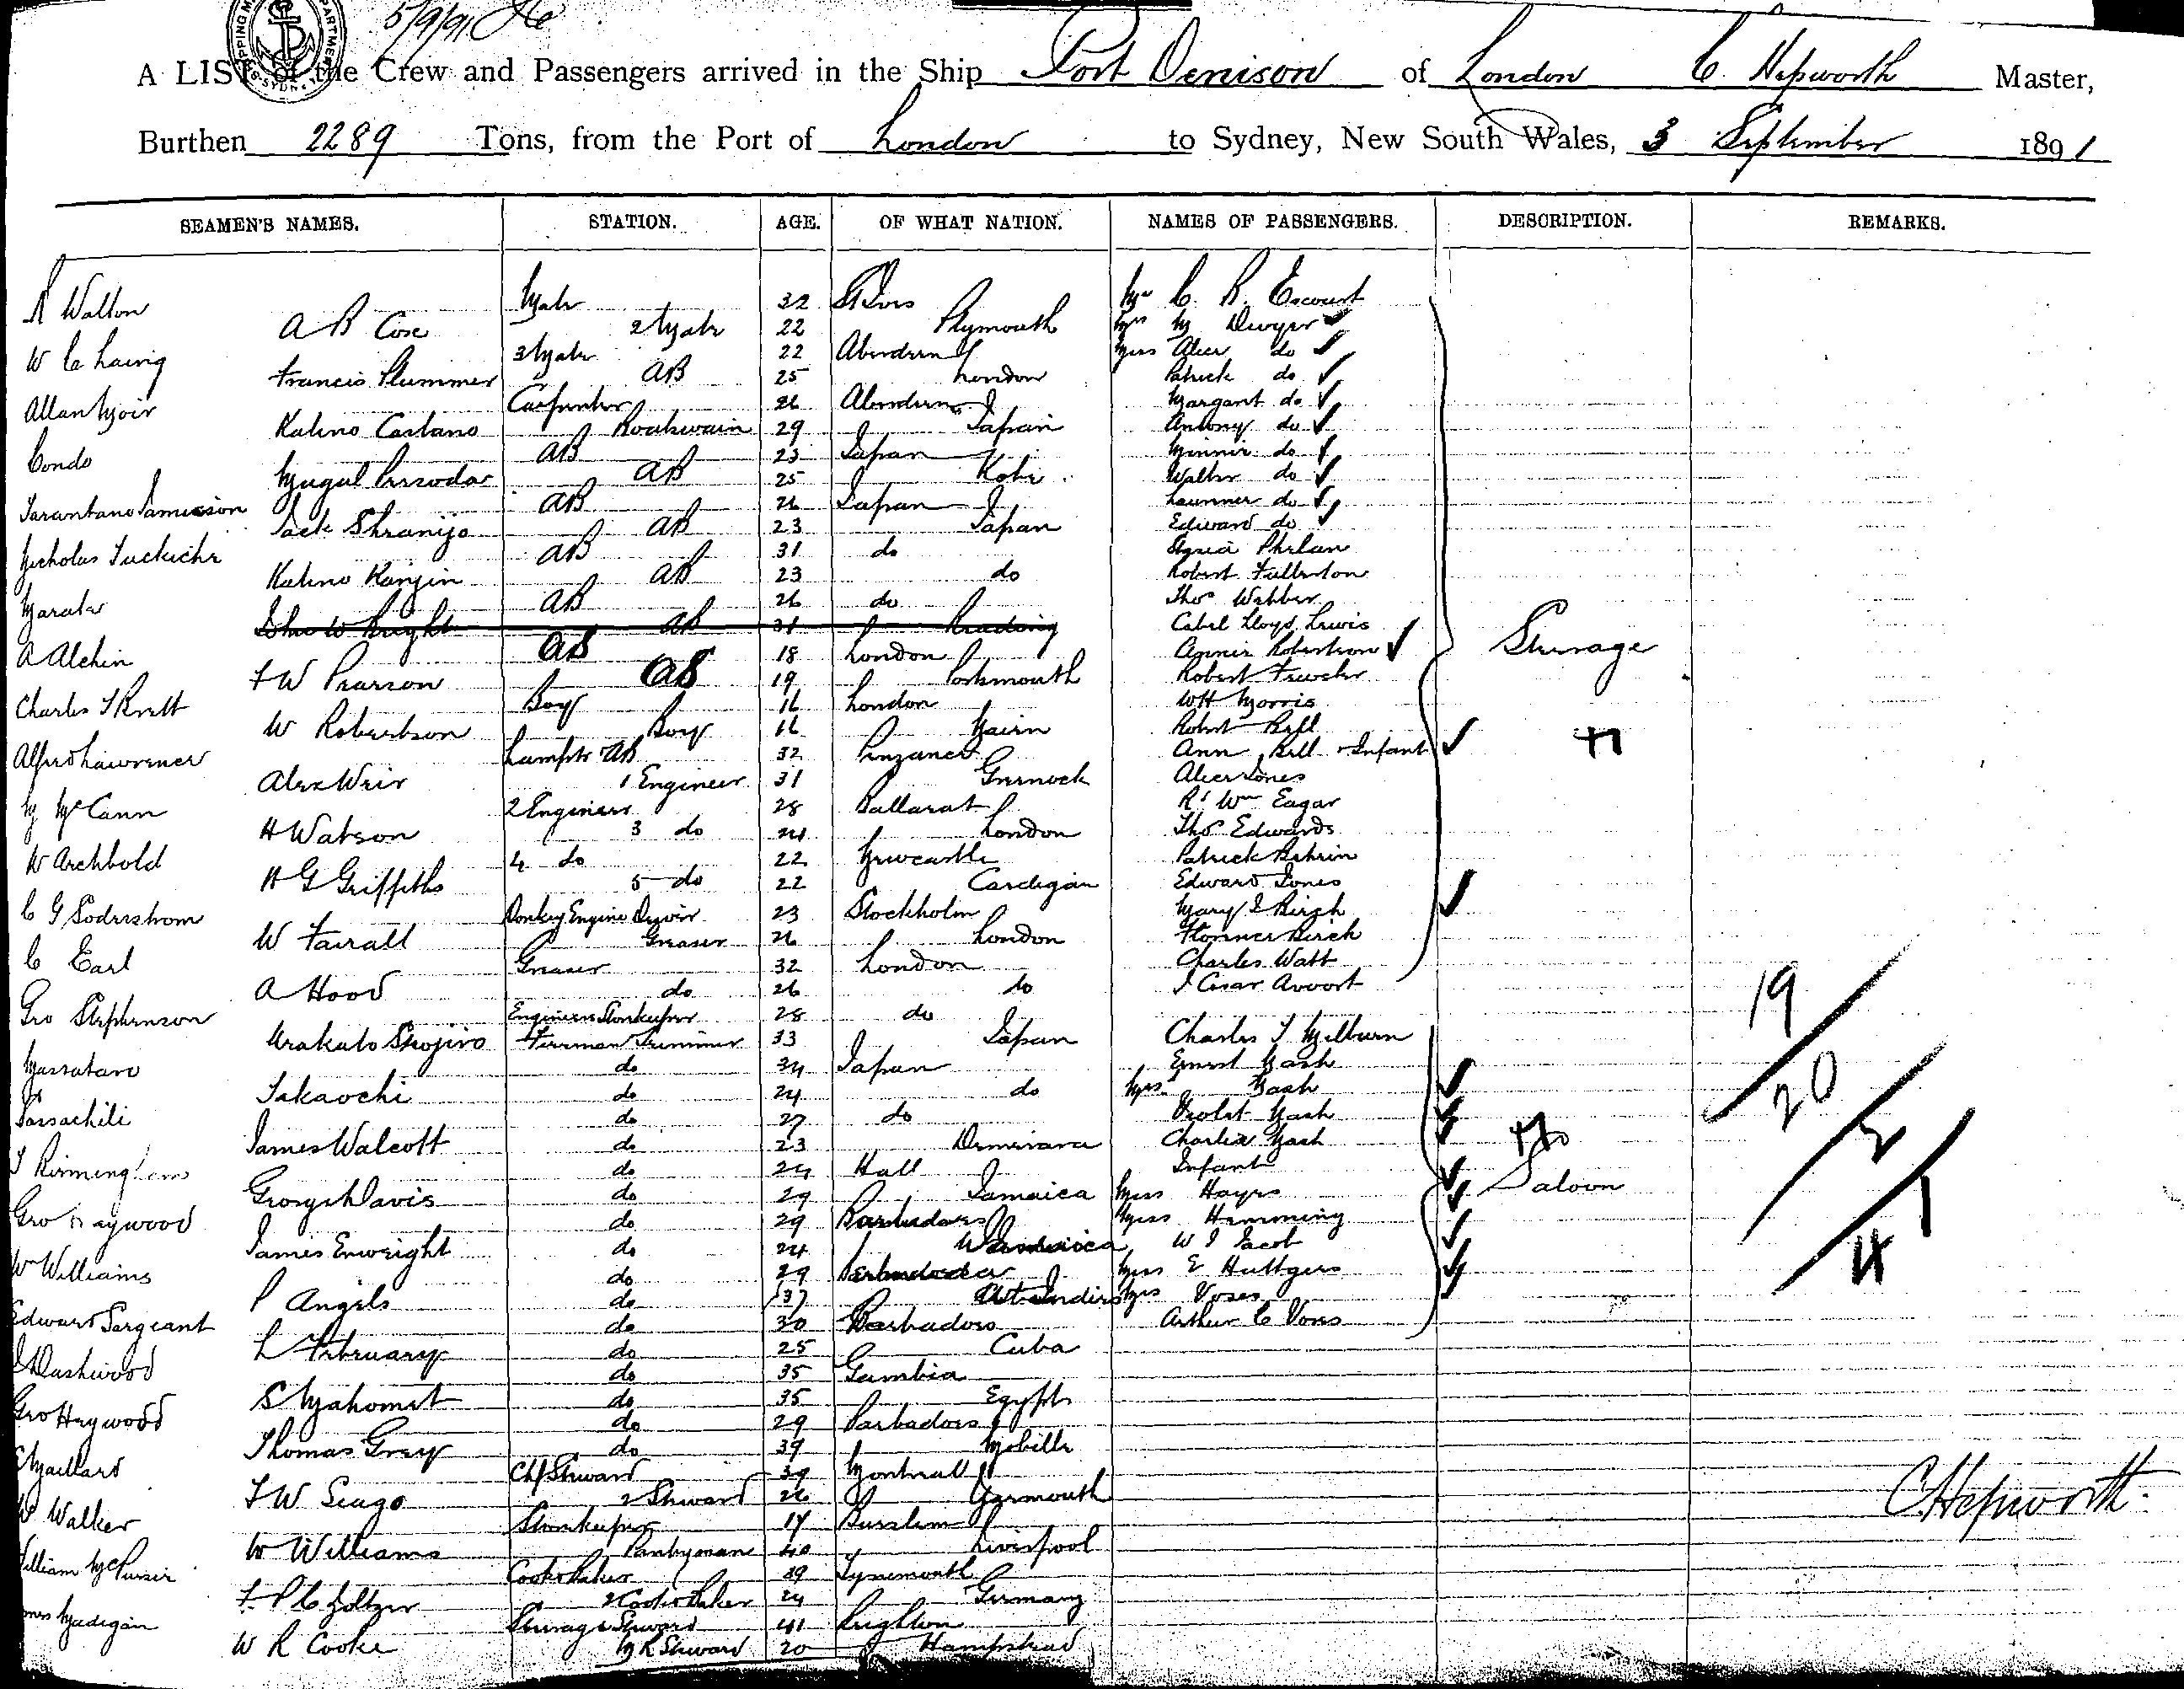 5/9/91
A LIST of the Crew and Passengers arrived in the Ship Port Denison of London C. Hepworth Master,
Burthen 2289 Tons, from the Port of London to Sydney, New South Wales, 3 September 1891
SEAMEN'S NAMES. STATION. AGE. OF WHAT NATION. NAMES OF PASSENGERS. DESCRIPTION. REMARKS.
R Walton Mate 32 St Ives Mr C. R. Escourt
A B Cox 2 Mate 22 Plymouth Mrs M Dwyer
W C Laing 3 Mate 22 Aberdeen Miss Alice do
Francis Plummer AB 25 London Patrick do
Allan Moir Carpenter 26 Aberdeen Margaret do
Kateno Carlano Boatswain 29 Japan Antony do
Condo AB 23 Japan Minnie do
AB 25 Kobe Walter do
AB 26 Japan do
Jack Shranijo AB 23 Japan Edward do
Nicholas AB 31 do Phelan
Kateno Kanjin AB 23 do Robert Fullerton
AB 26 do Thos Webber
John W Bright AB 31 Reading Lloyd Lewis
A Alchin AB 18 London Annie Robertson
F W Pearson AB 19 Portsmouth Robert
Charles Boy 16 London W H Morris
W Robertson Boy 16 Nairn Robert Bell
Alfred Lawrence Lamps AB 32 Penzance Ann Bell & Infant
Alex Weir 1 Engineer 31 Greenock Alice Jones
M McCann 2 Engineer 28 Ballarat Rt Wm Eagar
H Watson 3 do 24 London Thos Edwards
W Archbold 4 do 22 Newcastle Patrick
H G Griffiths 5 do 22 Cardigan Edward Jones
C G Soderstrom Donkey Engine Driver 23 Stockholm Mary J Birch
W Fairall Greaser 26 London Florence Birch
C Earl Greaser 32 London Charles Watt
A Hood do 26 do J Cesar
Geo Stephenson Engineers Storekeeper 28 do
Urakato Shojiro Fireman & Trimmer 33 Japan Charles J Milburn
Massataro do 34 Japan Ernest Nash
Takaochi do 24 do Mrs Nash
Sassachili do 27 do Violet Nash
James Walcott do 23 Demerara Charlie Nash
J Birmingham do 24 Hull Infant
George H Davis do 29 Jamaica Miss Hayes
Geo Haywood do 29 Barbadoes Miss Hemming
James Enwright do 24 W J Jacob
Wm Williams do 29 Miss E Huttgers
P Angels do 37 Wt Indies Mrs Voses
Edward Sergeant do 30 Barbadoes Arthur C Voses
L February do 25 Cuba
Dashwood do 35 Gambia
S Mahomet do 35 Egypt
Geo Haywood do 29 Barbadoes
Thomas Grey do 39 Mobille
Maillard Chf Steward 39 Montreal
F W Seago 2 Steward 26 Yarmouth
W Walker Storekeeper 17 Burslem
W Williams Pantryman 40 Liverpool
William Cook & Baker 39 Tynemouth
F P C Zoltzer 2 Cook & Baker 24 Germany
Madigan Steerage Steward 41 Brighton
W R Cooke M R Steward 20 Hampstead
Steerage
Saloon
19
20
2
1
4
C. Hepworth